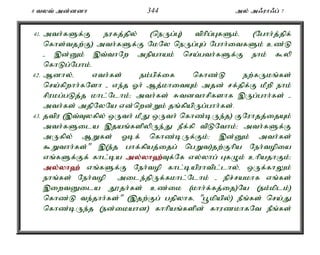 8 வலவ் அன்னனா 344 அல் அஃராஃப் 7
41. அவர்களுக்கு நரகத்தில் (நெருப்பு) விரிப்புகளும், (போர்த்திக்
கொள்வதற்கு) அவர்களுக்கு மேலே நெருப்புப் போர்வைகளும் உண்டு
- இன்னும் இவ்வாறே அநியாயம் செய்பவர்களுக்கு நாம் கூலி
கொடுப்போம்.
42. ஆனால், எவர்கள் நம்பிக்கை கொண்டு நற்கருமங்கள்
செய்கிறார்களோ - எந்த ஓர் ஆத்மாவையும் அதன் சக்திக்கு மீறி நாம்
சிரமப்படுத்த மாட்டோம்; அவர்கள் சுவனவாசிகளாக இருப்பார்கள் -
அவர்கள் அதிலேயே என்றென்றும் தங்கியிருப்பார்கள்.
43. தவிர (இவ்வுலகில் ஒருவர் மீது ஒருவர் கொண்டிருந்த) குரோதத்தையும்
அவர்களுடைய இதயங்களிலிருந்து நீக்கி விடுவோம்; அவர்களுக்கு
அருகில் ஆறுகள் ஓடிக் கொண்டிருக்கும்; இன்னும் அவர்கள்
கூறுவார்கள்" இ(ந்த பாக்கியத்தைப் பெறுவ)தற்குரிய நேர்வழியை
எங்களுக்குக் காட்டிய அல்லாஹ்வுக்கே எல்லாப் புகழும் உரியதாகும்;
அல்லாஹ் எங்களுக்கு நேர்வழி காட்டியிராவிட்டால், ஒருக்காலும்
நாங்கள் நேர்வழி அடைந்திருக்கமாட்டோம் - நிச்சயமாக எங்கள்
இறைவனுடைய தூதர்கள் உண்மை (மார்க்கத்தை)யே (நம்மிடம்)
கொண்டு வந்தார்கள்" (இதற்குப் பதிலாக, "பூமியில்) நீங்கள் செய்து
கொண்டிருந்த (நன்மையான) காரியங்களின் காரணமாகவே நீங்கள்